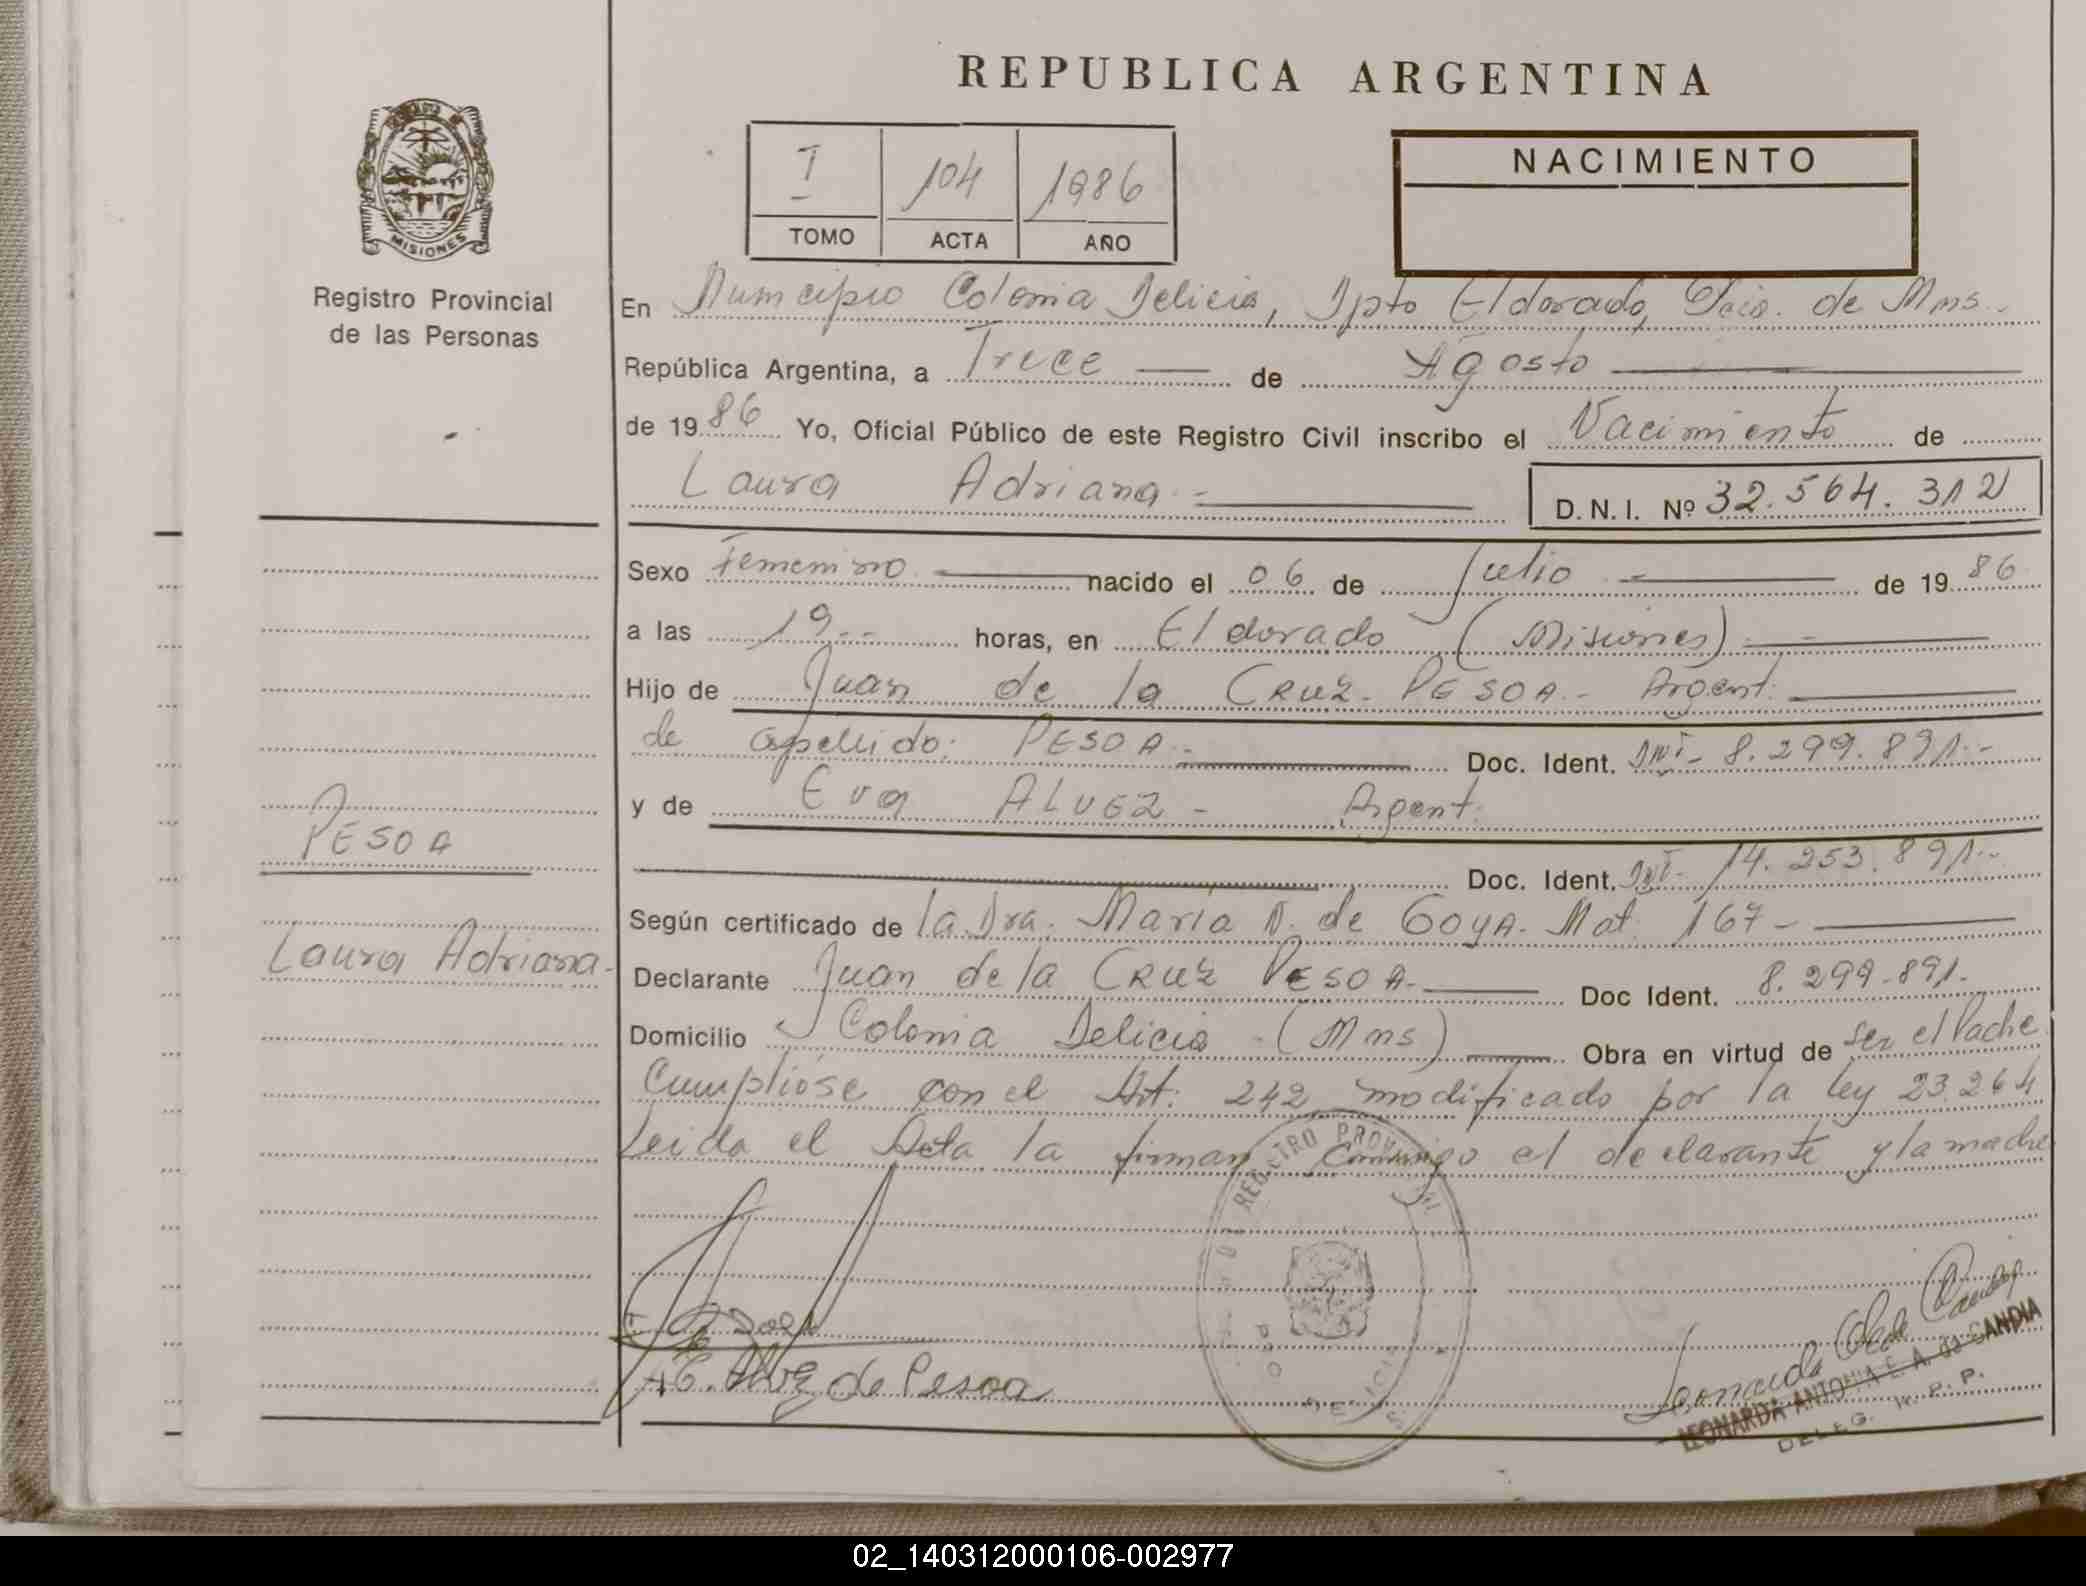 REPUBLICA ARGENTINA
MISIONES
Registro Provincial
de las Personas
I 104 1986
TOMO ACTA AÑO
NACIMIENTO
En Municipio Colonia Delicia, Dpto Eldorado, Pcia. de Mns.-
República Argentina, a Trece de Agosto
de 1986 Yo, Oficial Público de este Registro Civil inscribo el Nacimiento de
Laura Adriana.-
D. N. I. Nº 32.564.312
Sexo Femenino nacido el 06 de Julio.- de 1986
a las 19.-- horas, en Eldorado (Misiones).-
Hijo de Juan de la CRUZ-PESOA.- Argent.
de apellido: PESOA.- Doc. Ident. DNI- 8.299.891.-
y de Eva ALVEZ- Argent.
Doc. Ident. DNI- 14.253.891.-
PESOA
Laura Adriana-
Según certificado de la Dra. María N. de GOYA. Mat. 167-
Declarante Juan de la CRUZ PESOA.- Doc Ident. 8.299.891.
Domicilio Colonia Delicia - (Mns) Obra en virtud de ser el Padre
Cumplióse con el Art. 242 modificado por la ley 23.264
Leida el Acta la firman Conmigo el declarante y la madre
REGISTRO PROVINCIAL
DELICIA
E. Alvez de Pesoa
LEONARDA ANTONIA E. A. de CANDIA
DELEG. R. P. P.
02_140312000106-002977